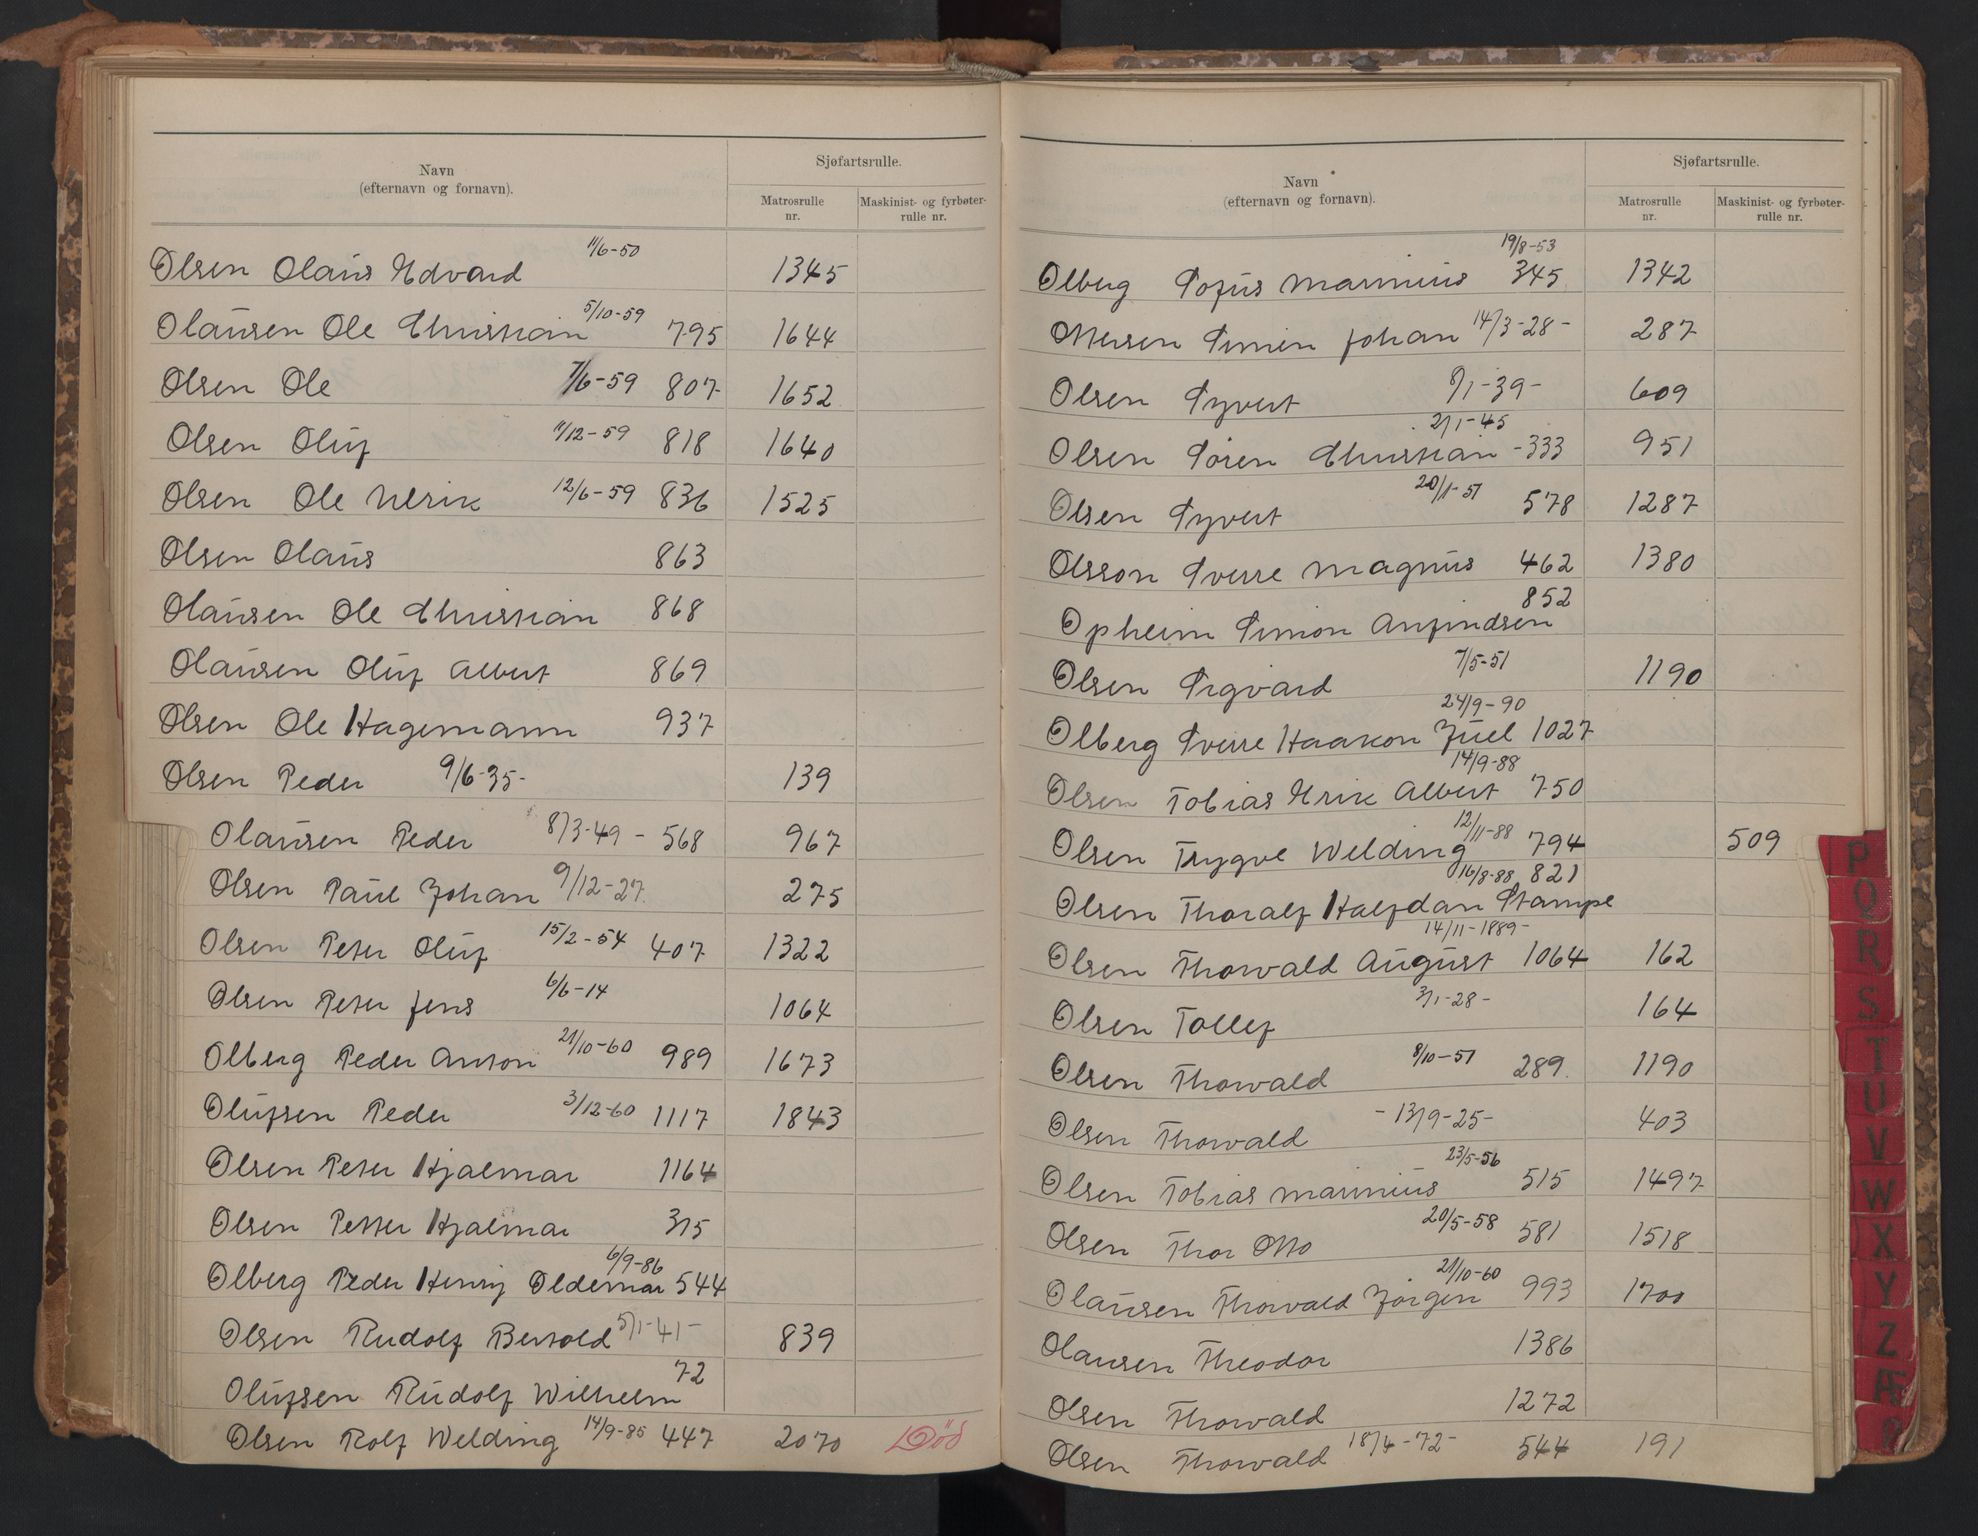 Navn
(efternavn og fornavn).
Sjøfartsrulle.
Matrosrulle
nr.
Maskinist- og fyrbøter-
rulle nr.
Olsen Olaus Edvard 11/6-50 1345
Olausen Ole Christian 5/10-59 795 1644
Olsen Ole 7/6-59 807 1652
Olsen Oluf 11/12-59 818 1640
Olsen Ole Ulrik 12/6-59 836 1525
Olsen Olaus 863
Olausen Ole Christian 868
Olausen Oluf Albert 869
Olsen Ole Hagemann 937
Olsen Peder 9/6-35- 139
Olausen Peder 8/3-49- 568 967
Olsen Paul Johan 9/12-27. 275
Olsen Peter Oluf 15/2-54 407 1322
Olsen Peter Jens 6/6-14 1064
Olberg Peder Anton 21/10-60 989 1673
Olufsen Peder 3/12-60 1117 1843
Olsen Peter Hjalmar 1164
Olsen Petter Hjalmar 315
Olberg Peder Henry Oldemar 6/9-86 544
Olsen Rudolf Bertold 5/1-41- 839
Olufsen Rudolf Wilhelm 72
Olsen Rolf Welding 14/9-85 447 2070 Död
Navn
(efternavn og fornavn).
Sjøfartsrulle.
Matrosrulle
nr.
Maskinist- og fyrbøter-
rulle nr.
Olberg Sofus Marinius 19/8-53 345 1342
Simen Johan 14/3-28- 287
Olsen Syvert 8/1-39- 609
Olsen Sören Christian 2/1-45 -333 951
Olsen Syvert 20/1-51 578 1287
Olsson Sverre Magnus 462 1380
Opheim Simon Anfindsen 852
Olsen Sigvard 7/5-51 1190
Olberg Sverre Haakon Juel 24/9-90 1027
Olsen Tobias Erik Albert 14/9-88 750
Olsen Trygve Welding 12/11-88 794 509
Olsen Thoralf Halfdan Stampe 16/8-88 821
Olsen Thorvald August 14/11-1889- 1064 162
Olsen Tollef 3/1-28- 164
Olsen Thorvald 8/10-51 289. 1190
Olsen Thorvald -13/9-25- 403
Olsen Tobias Marinius 23/5-56 515 1497
Olsen Thor Otto 20/5-58 581 1518
Olausen Thorvald Jörgen 21/10-60 993 1700
Olausen Theodor 1386
Olsen Thorvald 1272
Olsen Thorvald 18/4-72- 544 191
P
Q
R
S
T
U
V
W
X
Y
Z
Æ